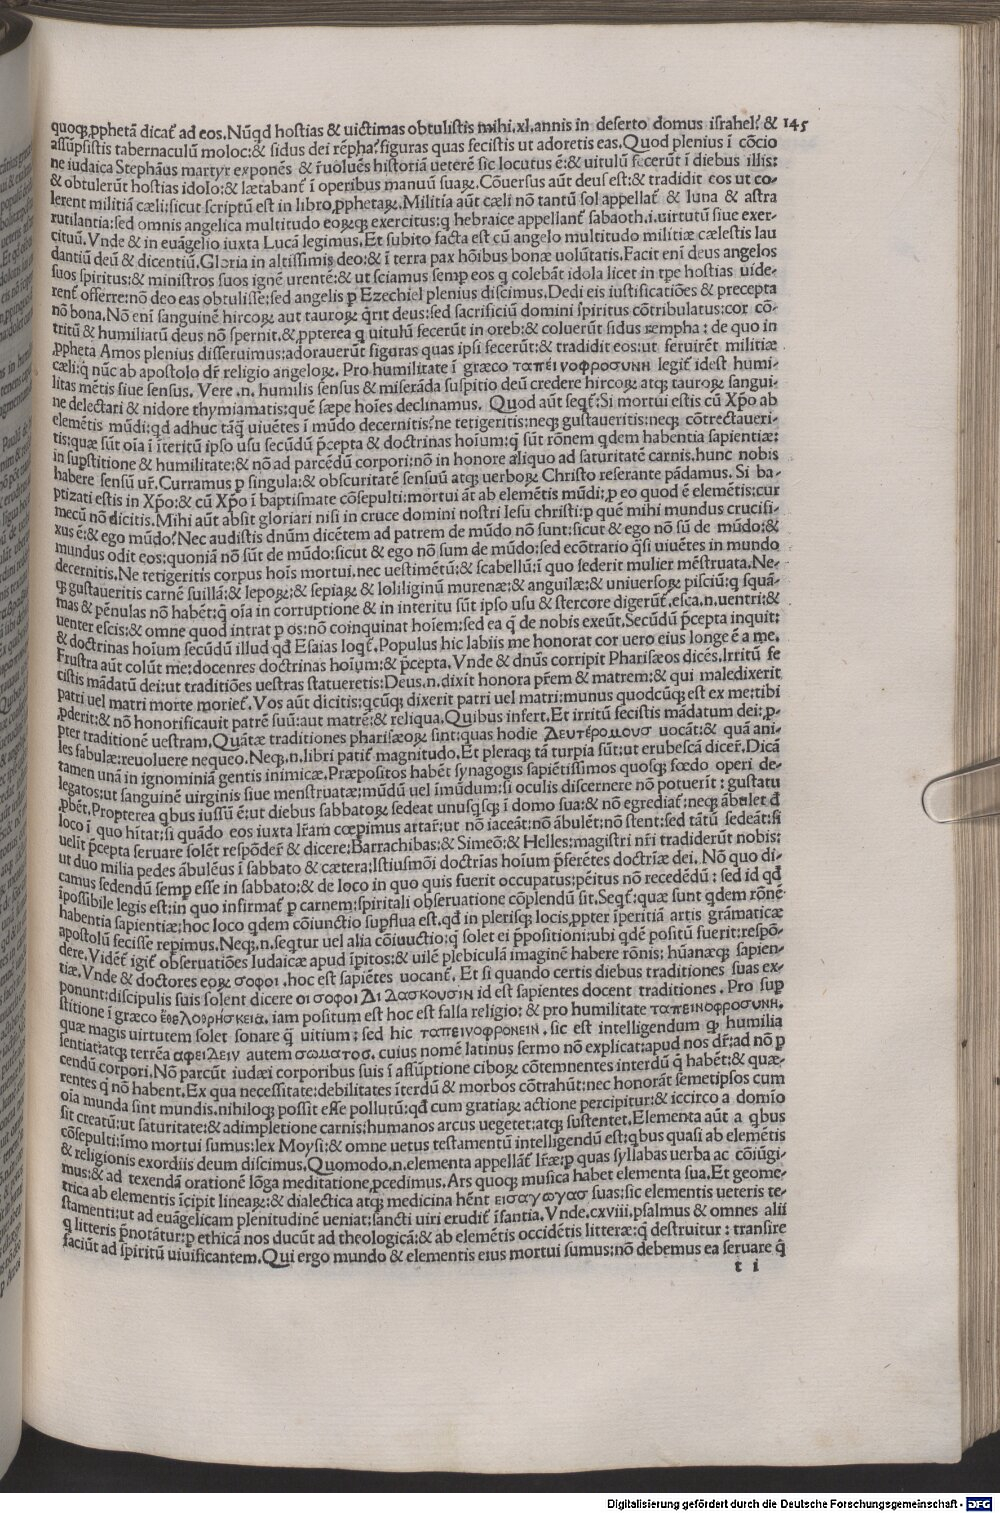 quoq; ꝓphetā dicat᷑ ad eos. Nūqd hostias & uictimas obtulistis mihi .xl. annis in deserto domus israhel? & 145
assūpsistis tabernaculū moloc: & sidus dei rēpha? figuras quas fecistis ut adoretis eas. Quod plenius ī cōcio
ne iudaica Stephāus martyr exponēs & r̄uoluēs historiā ueterē sic locutus ē: & uitulū fecerūt ī diebus illis:
& obtulerūt hostias idolo: & lætabant᷑ ī operibus manuū suaꝝ. Cōuersus aūt deus est: & tradidit eos ut co-
lerent militiā cæli: sicut scriptū est in libro ꝓphetaꝝ. Militia aūt cæli nō tantū sol appellat᷑ & luna & astra
rutilantia: sed omnis angelica multitudo eoꝝq; exercitus: q hebraice appellant᷑ sabaoth .i. uirtutū siue exer-
cituū. Vnde & in euāgelio iuxta Lucā legimus. Et subito facta est cū angelo multitudo militiæ cælestis lau
dantiū deū & dicentiū. Gloria in altissimis deo: & ī terra pax hōibus bonæ uolūtatis. Facit enī deus angelos
suos spiritus: & ministros suos ignē urentē: & ut sciamus semp eos q colebāt idola licet in tpe hostias uide-
rent᷑ offerre: nō deo eas obtulisse: sed angelis p Ezechiel plenius discimus. Dedi eis iustificatiōes & precepta
nō bona. Nō enī sanguinē hircoꝝ aut tauroꝝ q̄rit deus: sed sacrificiū domini spiritus cōtribulatus: cor cō-
tritū & humiliatū deus nō spernit. & ꝓpterea q uitulū fecerūt in oreb: & coluerūt sidus rempha: de quo in
ꝓpheta Amos plenius disseruimus: adorauerūt figuras quas ipsi fecerūt: & tradidit eos: ut seruirēt militiæ
cæli: q̄ nūc ab apostolo dr̄ religio angeloꝝ. Pro humilitate ī græco ταπεινοφροσυνη legit᷑ idest humi-
litas mētis siue sensus. Vere .n. humilis sensus & miserāda suspitio deū credere hircoꝝ atq; tauroꝝ sangui-
ne delectari & nidore thymiamatis: quē sæpe hoīes declinamus. Quod aūt seqt᷑: Si mortui estis cū Xp̄o ab
elemētis mūdi: qd adhuc tāq̄ uiuētes ī mūdo decernitis? ne tetigeritis: neq; gustaueritis: neq; cōtrectaueri-
tis: quæ sūt oīa ī īteritū ipso usu secūdū p̄cepta & doctrinas hoīum: q̄ sūt rōnem qdem habentia sapientiæ:
in supstitione & humilitate: & nō ad parcēdū corpori: nō in honore aliquo ad saturitatē carnis. hunc nobis
habere sensū ur̄. Curramus p singula: & obscuritatē sensuū atq; uerboꝝ Christo reserante pādamus. Si ba-
ptizati estis in Xp̄o: & cū Xp̄o ī baptismate cōsepulti: mortui āt ab elemētis mūdi: ꝓ eo quod ē elemētis: cur
mecū nō dicitis. Mihi aūt absit gloriari nisi in cruce domini nostri Iesu christi: p quē mihi mundus crucifi-
xus ē: & ego mūdo? Nec audistis dnūm dicētem ad patrem de mūdo nō sunt: sicut & ego nō sū de mūdo: &
mundus odit eos: quoniā nō sūt de mūdo: sicut & ego nō sum de mūdo: sed ecōtrario q̄si uiuētes in mundo
decernitis. Ne tetigeritis corpus hoīs mortui. nec uestimētū: & scabellū: ī quo sederit mulier mēstruata. Ne-
q; gustaueritis carnē suillā: & lepoꝝ: & sepiaꝝ & loliliginū murenæ: & anguilæ: & uniuersoꝝ pisciū: q squā-
mas & pēnulas nō habēt: q̄ oīa in corruptione & in interitu sūt ipso usu & stercore digerūt᷑. esca .n. uentri: &
uenter escis: & omne quod intrat p os: nō coinquinat hoīem: sed ea q̄ de nobis exeūt. Secūdū p̄cepta inquit:
& doctrinas hoīum secūdū illud qđ Esaias loqt᷑. Populus hic labiis me honorat cor uero eius longe ē a me.
Frustra aūt colūt me: docenres doctrinas hoīum: & p̄cepta. Vnde & dnūs corripit Pharisæos dicēs. Irritū fe
cistis mādatū dei: ut traditiōes uestras statueretis: Deus .n. dixit honora pr̄em & matrem: & qui maledixerit
patri uel matri morte moriet᷑. Vos aūt dicitis: qcūq; dixerit patri uel matri: munus quodcūq; est ex me: tibi
ꝓderit: & nō honorificauit patrē suū: aut matrē: & reliqua. Quibus infert. Et irritū fecistis mādatum dei: ꝓ-
pter traditionē uestram. Quātæ traditiones pharisæoꝝ sint: quas hodie Δευτέρουσ uocāt: & quā ani-
les fabulæ: reuoluere nequeo. Neq; .n. libri patit᷑ magnitudo. Et pleraq; tā turpia sūt: ut erubescā dicer̄. Dicā
tamen unā in ignominiā gentis inimicæ. Præpositos habēt synagogis sapiētissimos quosq; fœdo operi de-
legatos: ut sanguinē uirginis siue menstruatæ: mūdū uel īmūdum: si oculis discernere nō potuerīt: gustatu
ꝓbēt. Propterea qbus iussū ē: ut diebus sabbatoꝝ sedeat unusqsq; ī domo sua: & nō egrediat᷑: neq; ābulet đ
loco ī quo hītat: si quādo eos iuxta lr̄am cœpimus artar̄: ut nō iaceāt: nō ābulēt: nō stent: sed tātū sedeāt: si
uelīt p̄cepta seruare solēt respōder̄ & dicere: Barrachibas: & Simeō: & Helles: magistri nr̄i tradiderūt nobis:
ut duo milia pedes ābulēus ī sabbato & cætera: Istiusmōi doctrias hoīum p̄ferētes doctrīæ dei. Nō quo di-
camus sedendū semp esse in sabbato: & de loco in quo quis fuerit occupatus: pēitus nō recedēdū: sed id qđ
īpossibile legis est: in quo infirmat᷑ p carnem: spiritali obseruatione cōplendū sit. Seqt᷑: quæ sunt qdem rōnē
habentia sapientiæ: hoc loco qdem cōiunctio supflua est. qđ in plerisq; locis ꝓpter īperitiā artis grāmaticæ
apostolū fecisse repimus. Neq; .n. seqtur uel alia cōiuuctio: q̄ solet ei p̄positioni: ubi qdē positū fuerit: respō-
dere. Vidēt᷑ igit᷑ obseruatiōes Iudaicæ apud īpitos: & uilē plebiculā imaginē habere rōnis: hūanæq; sapien-
tiæ. Vnde & doctores eoꝝ σοφοι .hoc est sapiētes uocant᷑. Et si quando certis diebus traditiones suas ex-
ponunt: discipulis suis solent dicere οι σοφοι Δι Δασκουσιν id est sapientes docent traditiones. Pro sup
stitione ī græco ἐθελοθρησκεια. iam positum est hoc est falsa religio: & pro humilitate ταπεινοφροσυνη.
quæ magis uirtutem solet sonare q̄ uitium: sed hic ταπεινοφρονειν. sic est intelligendum qꝫ humilia
sentiat: atq; terrēa αφειδειν autem σωματοσ. cuius nomē latinus sermo nō explicat: apud nos dr̄: ad nō p
cendū corpori. Nō parcūt iudæi corporibus suis ī assūptione ciboꝝ: cōtemnentes interdū q̄ habēt: & quæ-
rentes q̄ nō habent. Ex qua necessitate: debilitates īterdū & morbos cōtrahūt: nec honorāt semetipsos cum
oīa munda sint mundis. nihiloq; possit esse pollutū: qđ cum gratiaꝝ actione percipitur: & iccirco a domīo
sit creatū: ut saturitate: & adimpletione carnis: humanos arcus uegetet: atq; sustentet. Elementa aūt a qbus
cōsepulti: īmo mortui sumus: lex Moysi: & omne uetus testamentū intelligendū est: qbus quasi ab elemētis
& religionis exordiis deum discimus. Quomodo .n. elementa appellāt᷑ lr̄æ: p quas syllabas uerba ac cōiūgi-
mus: & ad texendā orationē lōga meditatione ꝓcedimus. Ars quoq; musica habet elementa sua. Et geome-
trica ab elementis īcipit lineaꝝ: & dialectica atq; medicina hēnt εισαγωγασ suas: sic elementis ueteris te-
stamenti: ut ad euāgelicam plenitudinē ueniat: sancti uiri erudit᷑ īfantia. Vnde .cxviii. psalmus & omnes alii
q litteris p̄notātur: p ethicā nos ducūt ad theologicā: & ab elemētis occidētis litteræ: q̄ destruitur: transire
faciūt ad spiritū uiuificantem. Qui ergo mundo & elementis eius mortui sumus: nō debemus ea seruare q̄
t i
Digitalisierung gefördert durch die Deutsche Forschungsgemeinschaft - DFG